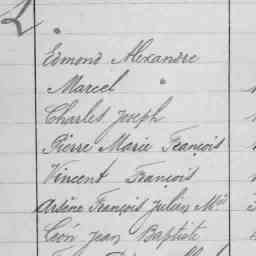 Edmond Alexandre
Marcel "
Charles Joseph
Pierre Marie François
Vincent François
Arsène François Julien Mie
Léon Jean Baptiste